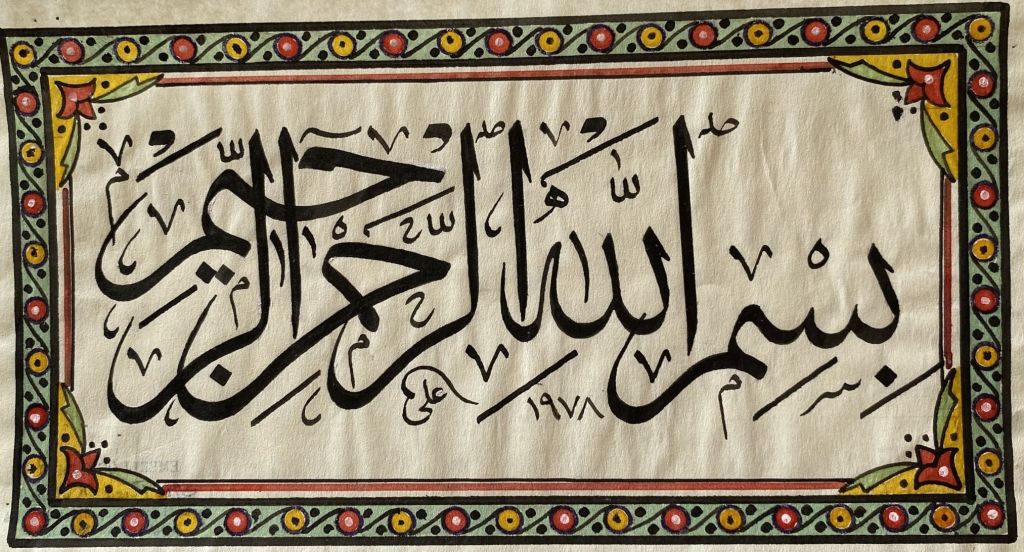 بِسْمِ اللّٰهِ الرَّحْمٰنِ الرَّحِيْمِ
علي ١٩٧٨